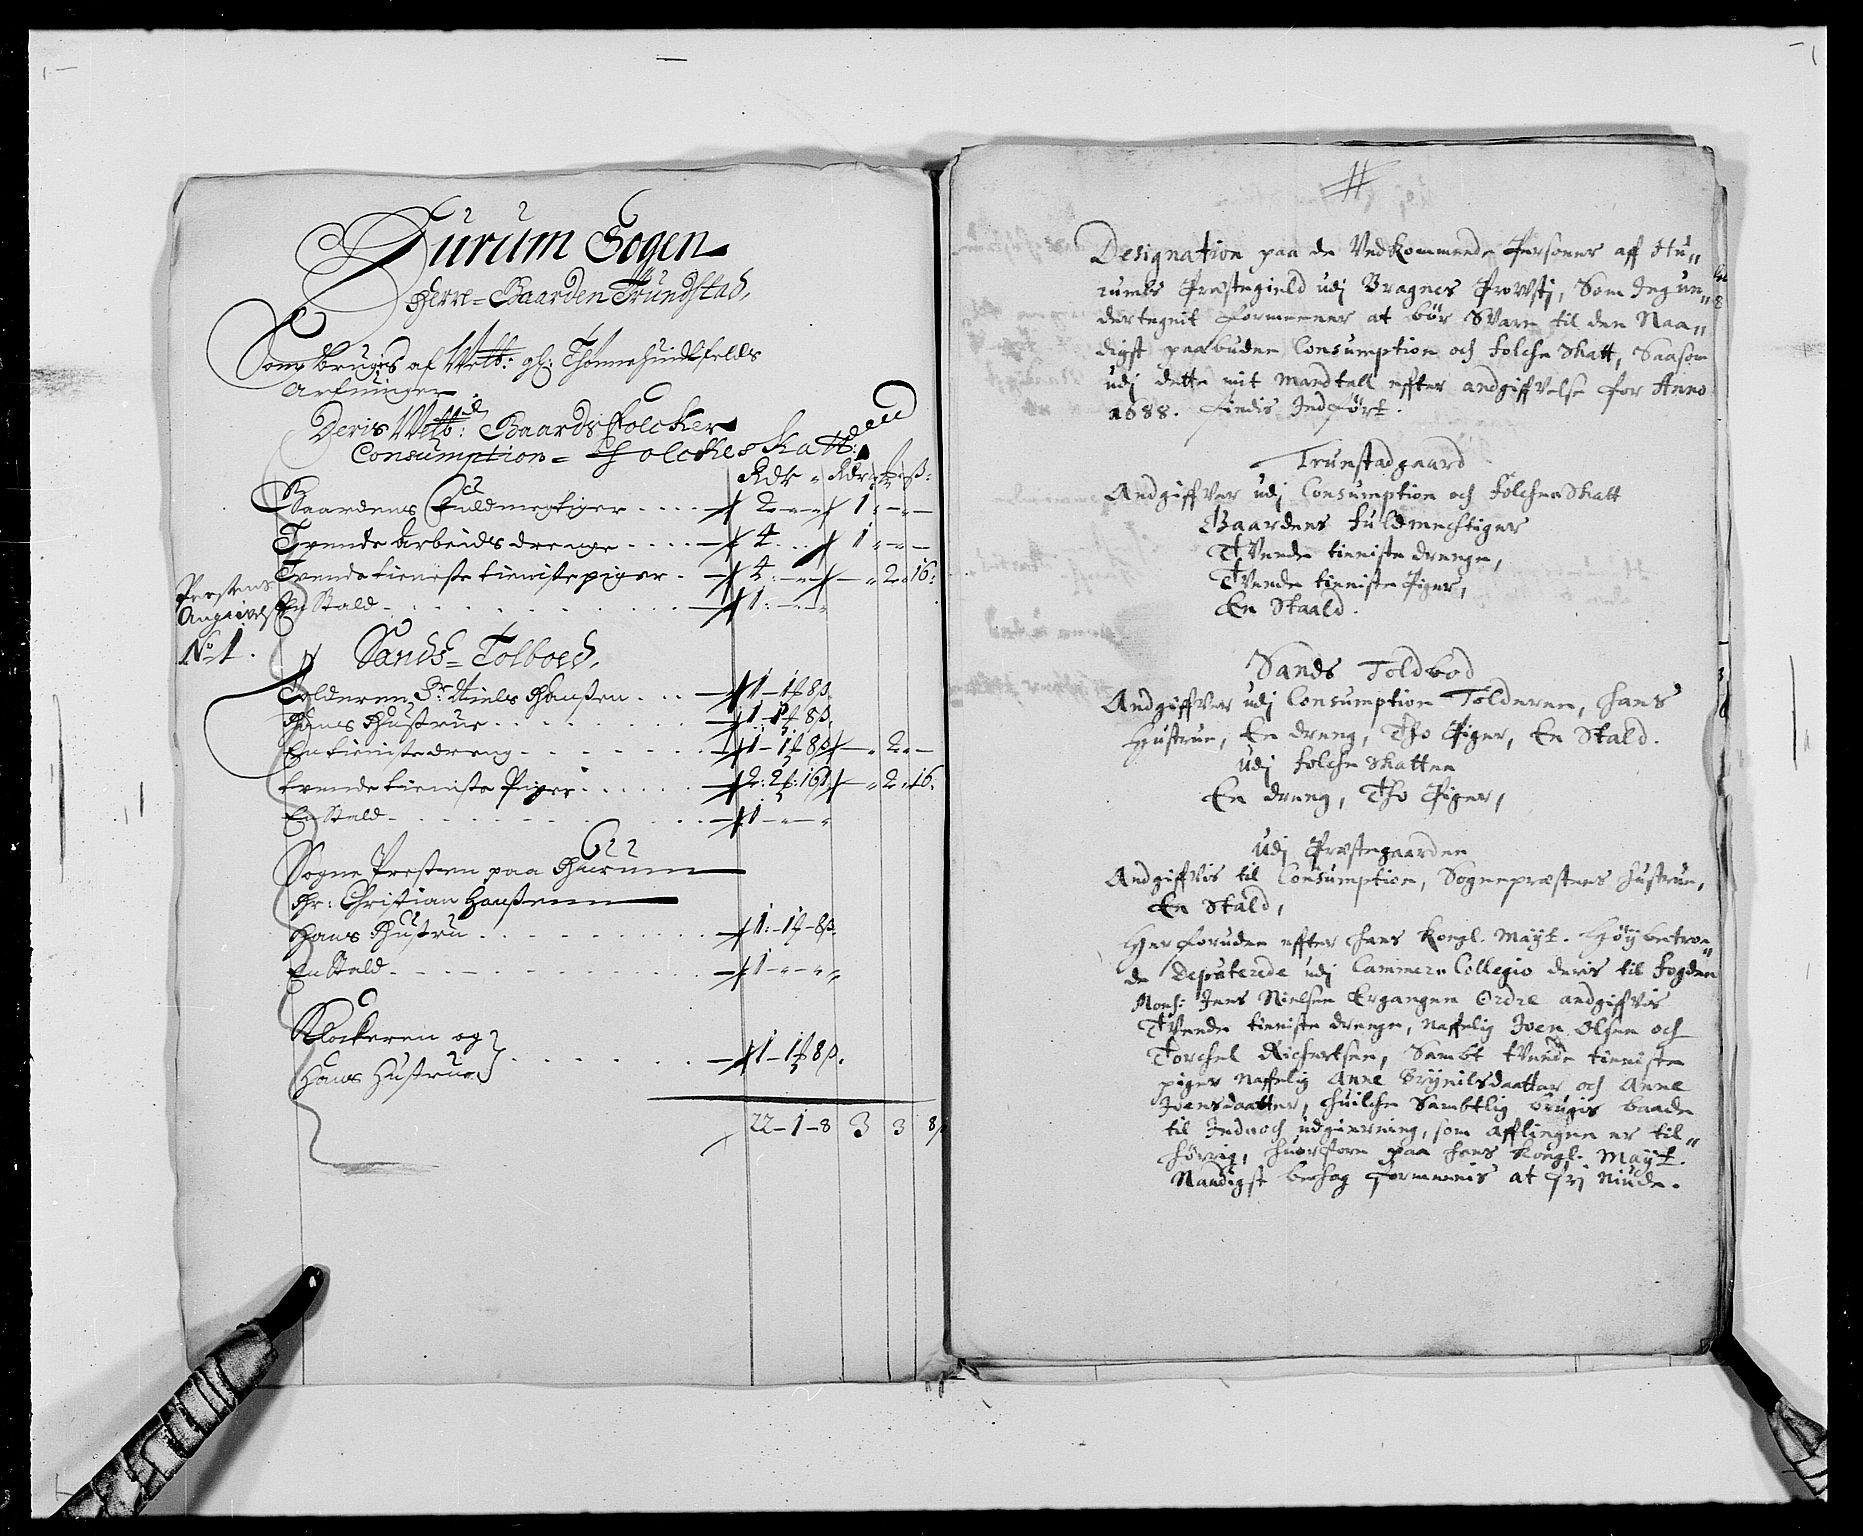 Hurum Sogen
Herre-Gaarden Trundstad,
Som bruges af Welb: Hr:
Arfuinger
Deris Welb: Gaards folcker
Consumption = Folckeskatt:
Rdr - Rdr - ß:
Gaardens Fuldmegtiger .... 2 - - 1 - -
Tvende Arbeids drenge .... 4 .. 1 - -
Tvende tieneste tienistepiger . 4: - - - 2 - 16:
Prestens
Angivels
En Stald - 1: - -
No 1.
Sands = Tolboed,
Tolderen Sr. Niels Hanßen ... 1 - 1 - 8ß.
Hans Hustrue ..... 1 - 1 - 8ß.
En tieniste dreng - 1 - 1 - 8ß - 2 -
tvende tieniste Piger ...... 2: 2: 16ß - 2 - 16.
En Stald - 1 - - -
Sogne Presten paa Hurum
Hr: Christian Hanßenn
Hans Hustru ..... 1: - 1 - 8ß.
En Stald - 1 - - -
Klockeren og
Hans Hustrue ..... 1 - 1 - 8ß.
22 - 1 - 8 3 3 8ß
Designation paa de Vedkommende Personer aff Hu„
rumbs Præstegield udj Bragnes Prowstj, Som Jeg un„
dertegnit formeener at bør Svare til den Naa„
digst paabudne Consumption och folche Skatt, Saasom
udj dette mit mandtall effter andgiffvelse for Anno
1688. findis Indført.
Trunstadgaard
Andgiffver udj Consumption och folcheskatt
Gaardens fuldmechtiger
Tvende tieniste drenge,
Tvende tieniste Piger,
En Staald.
Sands Toldbod
Andgiffver udj Consumption Tolderen, hans
Hustrue, En dreng, Tho Piger, En Stald.
udj folche skatten
En dreng, Tho Piger,
udj Præstegaarden
Andgiffvis til Consumption, Sognepræstens hustrue,
En Stald,
Her foruden effter hans Kongl. Mayt. Høybetroe„
de Deputerede udj Cammer Collegio deris til fogden
Mons: Jens Nielsen Ergangen Ordre andgiffvis
Tvende tieniste drenge, Naffnlig Joen Olsen och
Torchel Richertsen, Sambt tvende tieniste
piger Naffnlig Anne Brynilsdaatter och Anne
Joensdaatter, huilche Sambtlig brugis baade
til Ind och udgierning, som afflingen er til„
hørrig, huorfore paa hans Kongl. Mayt.
Naadigst behag formeenis at frj Niude.